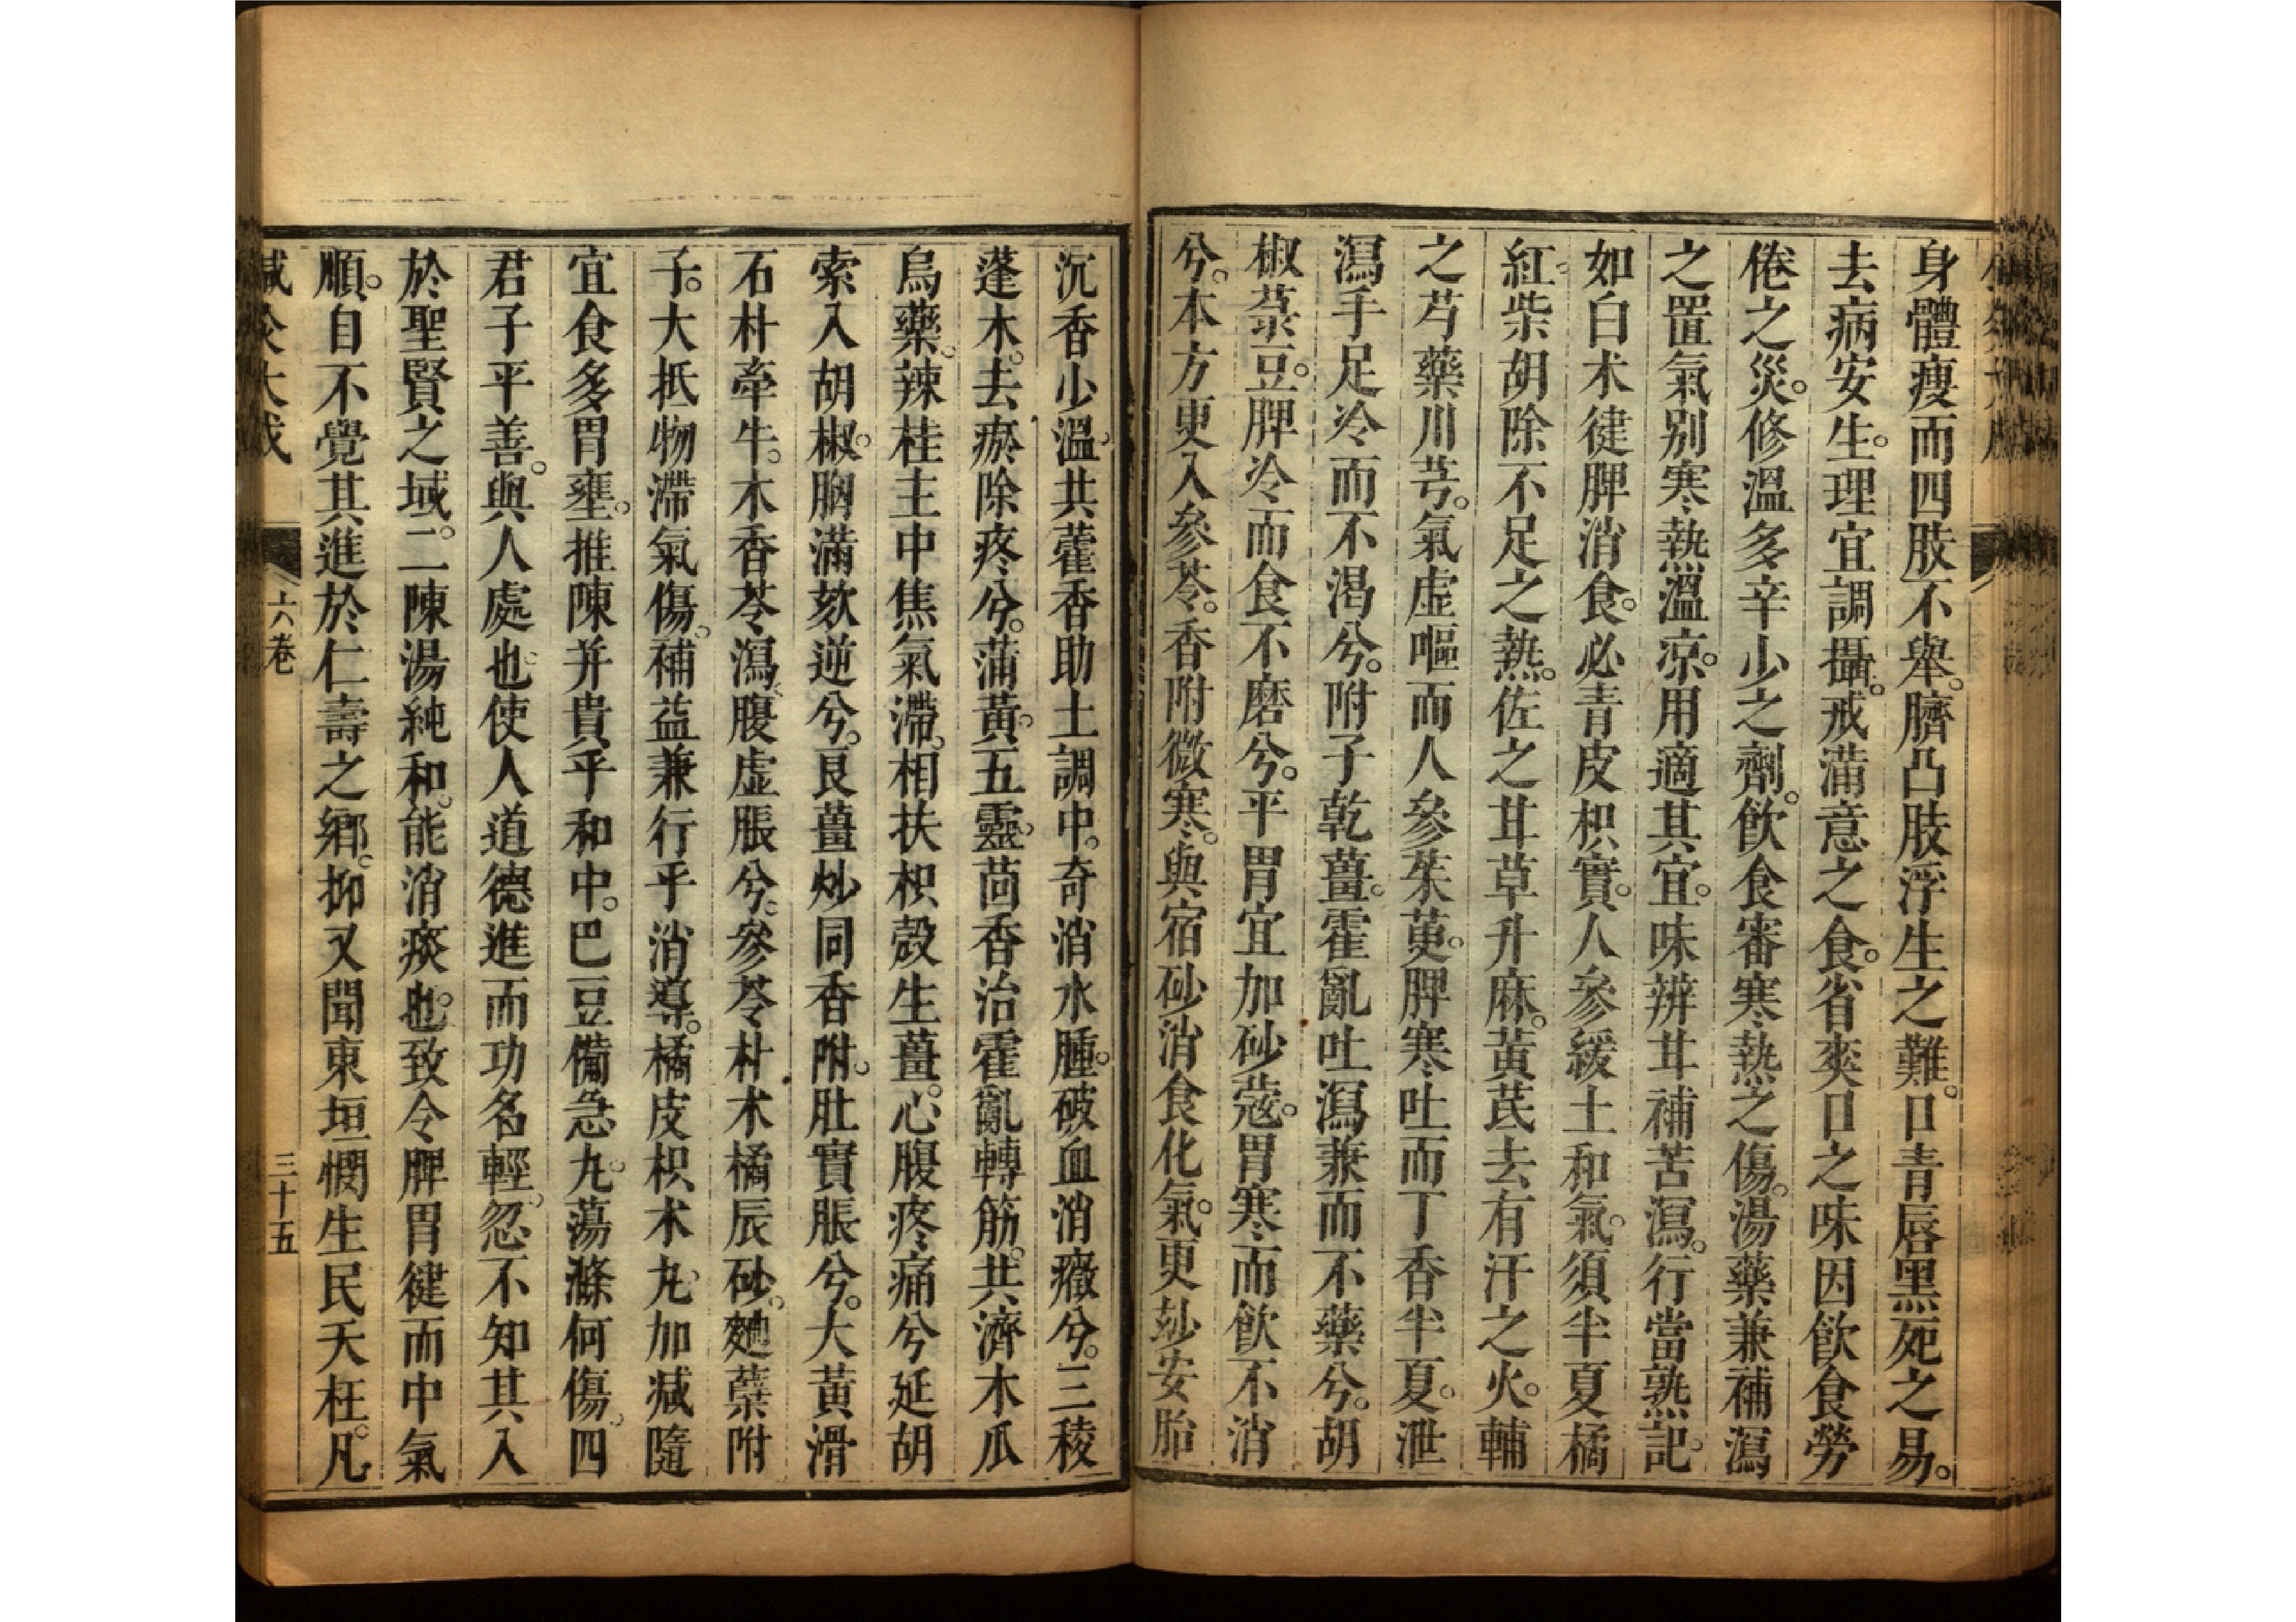 身體瘦而四肢不舉。臍凸肢浮生之難。口青唇黑死之易。
去病安生。理宜調攝。戒滿意之食。省爽口之味因飲食勞
倦之災。修溫多辛少之劑。飲食審寒熱之傷。湯藥兼補瀉
之置氣別寒熱溫凉。用適其宜。味辨甘補苦瀉。行當熟記。
如白术徤脾消食。必青皮枳實。人參緩土和氣。須半夏橘
紅。柴胡除不足之熱。佐之甘草升麻。黃芪去有汗之火。輔
之芍藥川芎。氣虛嘔而人參茱萸。脾寒吐而丁香半夏。泄
瀉手足冷而不渴兮。附子乾薑。霍亂吐瀉兼而不藥兮。胡
椒菉豆。脾冷而食不磨兮。平胃宜加砂蔻。胃寒而飲不消
兮。本方更入參苓。香附微寒。與宿砂消食化氣。更玅安胎
沉香少溫。共藿香助土調中。奇消水腫。破血消癥兮。三稜
蓬木。去瘀除疼兮。蒲黃。五靈。茴香治霍亂轉筋。共濟木瓜
烏藥。辣桂主中焦氣滯。相扶枳殼生薑。心腹疼痛兮延胡
索入胡椒。胸滿欬逆兮。良薑炒同香附。肚實脹兮。大黃滑
石朴牽牛。木香苓瀉。腹虛脹兮。參苓朴木橘辰砂。麯蘗附
子。大抵物滯氣傷。補益兼行乎消導。橘皮枳术丸。加减隨
宜食多胃壅。推陳并貴乎和中。巴豆備急丸。蕩滌何傷。四
君子平善。與人處也。使人道德進而功名輕。忽不知其入
於聖賢之域。二陳湯純和。能消痰也。致令脾胃徤而中氣
順。自不覺其進於仁壽之鄉。抑又聞東垣憫生民夭枉。凡
六卷 三十五